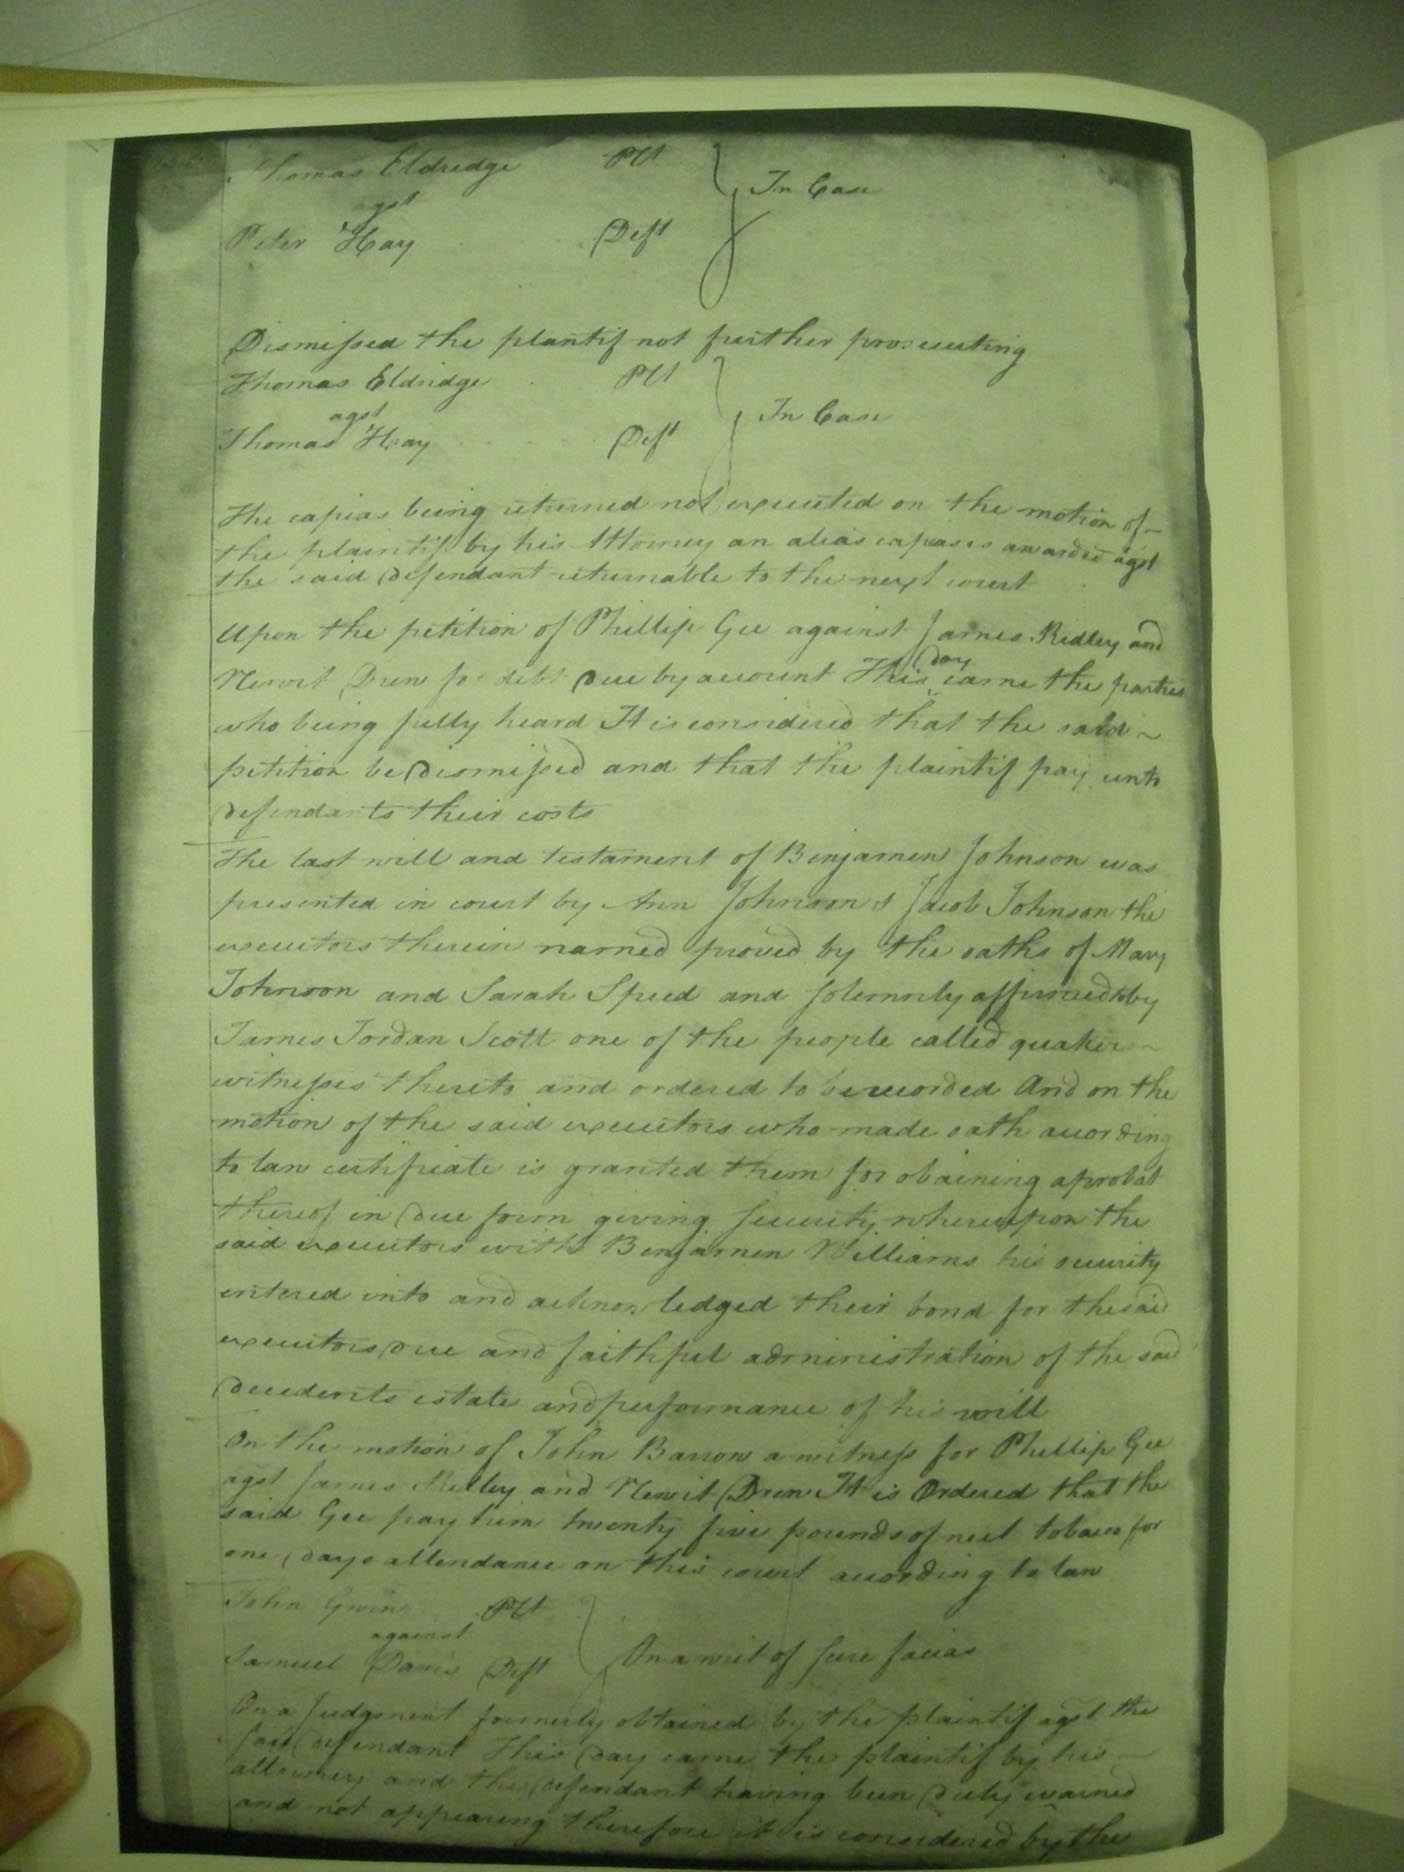 Thomas Eldredge Plt
In Case
agst
Peter Hay Deft
Dismissed the plantif not further prosecuting
Thomas Eldridge Plt
In Case
agst
Thomas Hay Deft
The capias being returned not executed on the motion of
the plaintif by his Attorney an alias capias is awarded agst
the said defendant returnable to the next court
Upon the petition of Phillip Gee against James Ridley and
Newit Drew for debt due by account This day came the parties
who being fully heard It is considered that the said
petition be dismissed and that the plaintif pay unto
defendants their costs
The last will and testament of Benjamen Johnson was
presented in court by Ann Johnson & Jacob Johnson the
executors therein named proved by the oaths of Mary
Johnson and Sarah Speed and solemnly affirmed to by
James Jordan Scott one of the people called quakers
witnesses thereto and ordered to be recorded And on the
motion of the said executors who made oath according
to law certificate is granted them for obtaining a probat
thereof in due form giving security whereupon the
said executors with Benjamen Williams his security
entered into and acknowledged their bond for the said
executors due and faithful administration of the said
decedents estate and performance of his will
On the motion of John Barrow a witness for Phillip Gee
agst James Ridley and Newit Drew It is Ordered that the
said Gee pay him twenty five pounds of neet tobacco for
one days attendance on this court according to law
John Gwin Plt
against
Samuel Davis Deft On a writ of scire facias
On a Judgement formerly obtained by the plaintif agst the
said defendant This day came the plaintif by his
attorney and the defendant having been duly warned
and not appearing therefore it is considered by the